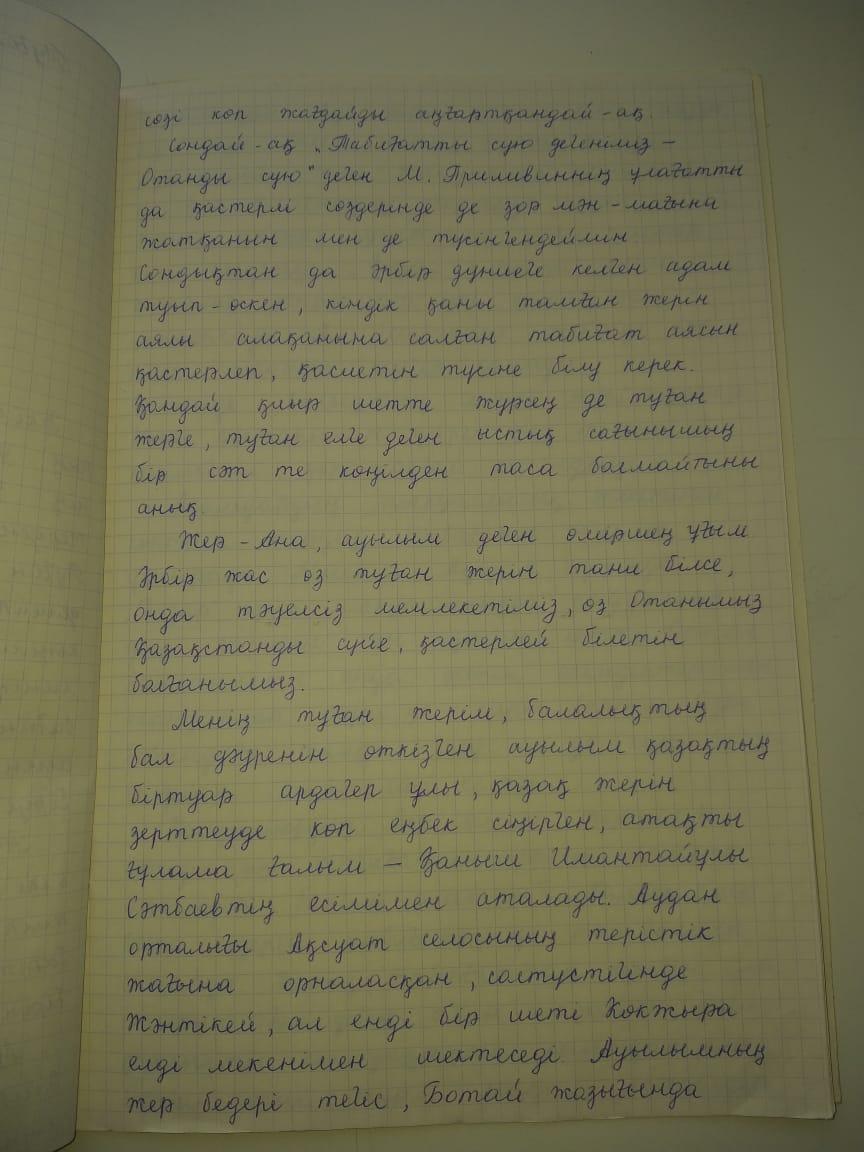 сөзі көп жағдайды аңғартқандай-ақ.
Сондай-ақ „Табиғатты сүю дегеніміз –
Отанды сүю" деген М. Пришвиннің ұлағатты
да қастерлі сөздерінде де зор мән-мағына
жатқанын мен де түсінгендеймін
Сондықтан да әрбір дүниеге келген адам
туып-өскен, кіндік қаны тамған жерін
аялы алақанына салған табиғат аясын
қастерлеп, қасиетін түсіне білу керек.
Қандай қиыр шетте жүрсең де туған
жерге, туған елге деген ыстық сағынышың
бір сәт те көңілден таса болмайтыны
анық.
Жер-Ана, ауылым деген өміршең ұғым
Әрбір жас өз туған жерін тани білсе,
онда тәуелсіз мемлекетіміз, өз Отанымыз
Қазақстанды сүйе, қастерлей білетін
болғанымыз.
Менің туған жерім, балалықтың
бал дәуренін өткізген ауылым қазақтың
біртуар ардагер ұлы, қазақ жерін
зерттеуде көп еңбек сіңірген, атақты
ғұлама ғалым – Қаныш Имантайұлы
Сәтбаевтың есімімен аталады. Аудан
орталығы Ақсуат селосының терістік
жағына орналасқан, солтүстігінде
Жәнтікей, ал енді бір шеті Көкжыра
елді мекенімен шектеседі. Ауылымның
жер бедері тегіс, Ботай жазығында